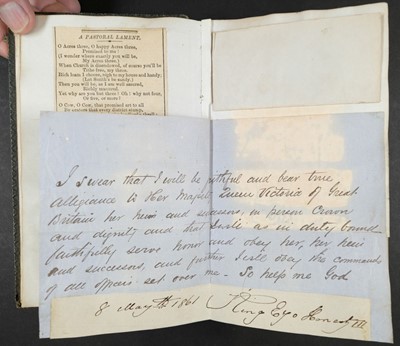 A PASTORAL LAMENT.
O Acres three, O happy Acres three,
Promised to me!
(I wonder where exactly you will be,
My Acres three.)
When Church is disendowed, of course you'll be
Tithe free, my three.
Then you will be, as I am well assured,
Richly manured.
Yet why are you but three? Oh! why not four,
Or five, or more?
O Cow, O Cow, thus promised art to all
I swear that I will be faithful and bear true
allegiance to Her Majesty Queen Victoria of Great
Britain her heirs and successors, in person Crown
and dignity and that I will as in duty bound
faithfully serve honor and obey her, her heirs
and successors, and further I will obey the commands
of all officers set over me - So help me God
8 May 1861